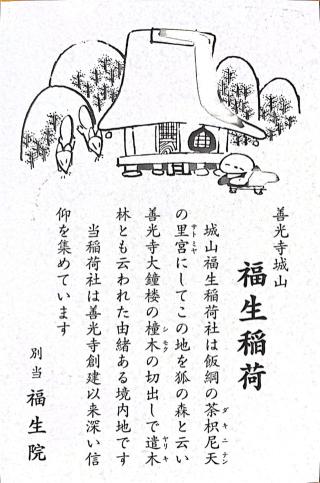 善光寺城山
福生稲荷
城山福生稲荷社は飯綱の荼枳尼天
の里宮にしてこの地を狐の森と云い
善光寺大鐘楼の橦木の切出しで遣木
林とも云われた由緒ある境内地です
当稲荷社は善光寺創建以来深い信
仰を集めています
別当 福生院